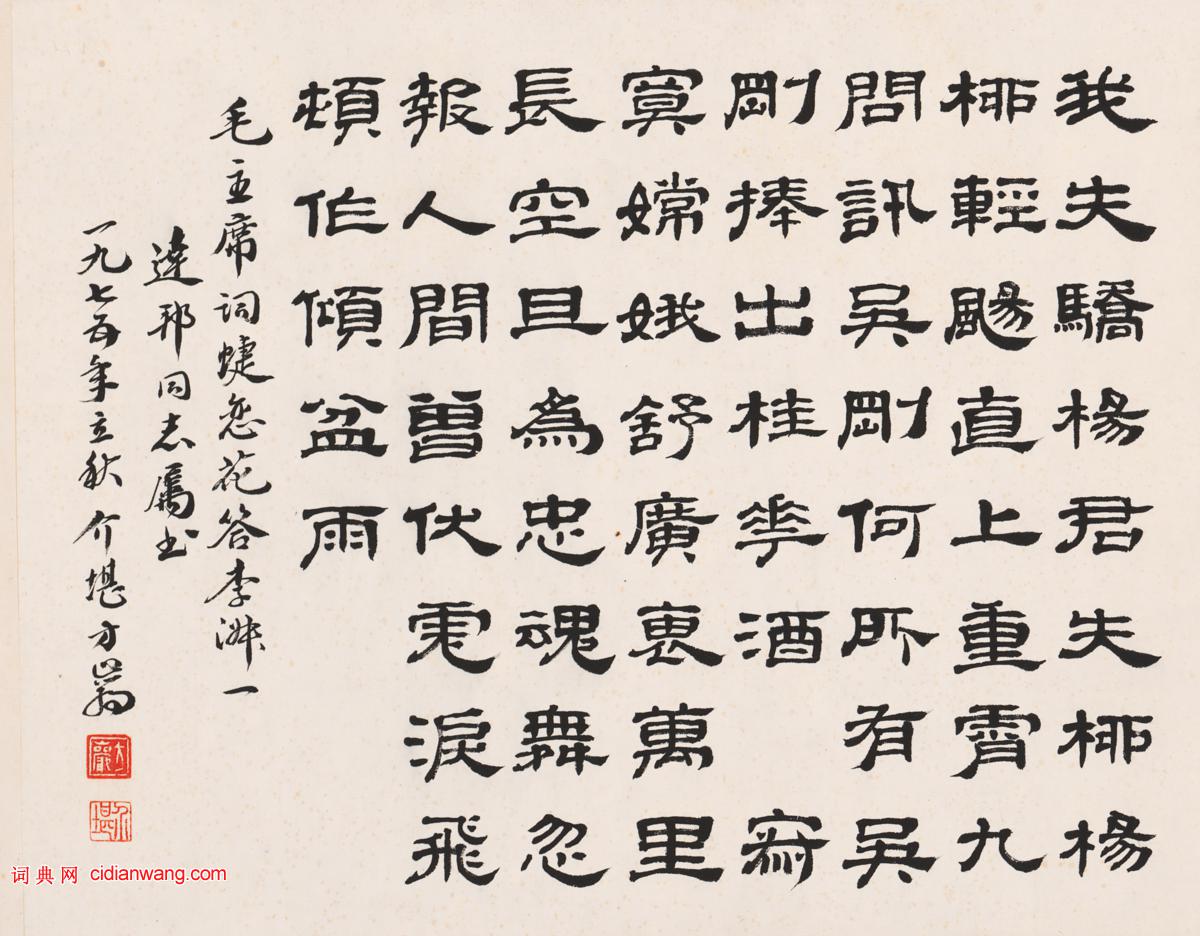 我失驕楊君失桺楊
桺輕颺直上重霄九
問訊吳剛何所有吳
剛捧出桂華酒 寂
寞嫦娥舒廣袖萬里
長空且為忠魂舞忽
報人間曾伏虎淚飛
頓作傾盆雨
毛主席词蝶恋花答李淑一
達邦同志属书
一九七五年立秋介堪方巖
方巖
介堪
词典网 cidianwang.com